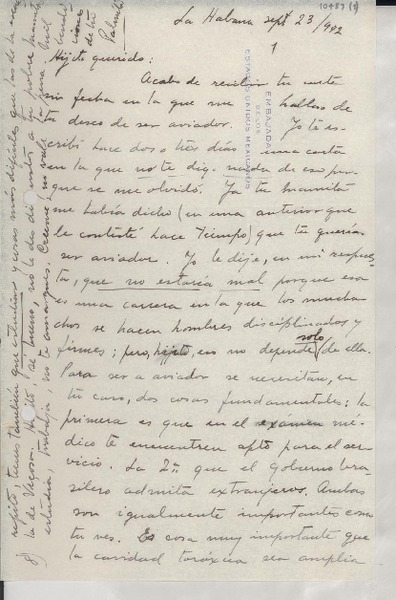 10457 (1)
La Habana sept 23/942
1
Hijito querido:
Acabo de recibir tu carta
sin fecha en la que me hablas de
tu deseo de ser aviador. Yo te es-
cribí hace dos o tres días una carta
en la que no te dig. nada de eso por-
que se me olvidó. Ya tu mamita
me había dicho (en una anterior que
le contesté hace tiempo) que tu querías
ser aviador. Yo le dije, en mi respues-
ta, que no estaría mal porque esa
es una carrera en la que los mucha-
chos se hacen hombres disciplinados y
firmes; pero, hijito, eso no depende solo de ella.
Para ser a aviador se necesitan, en
tu caso, dos cosas fundamentales: la
primera es que en el exámen mé-
dico te encuentren apto para el ser-
vicio. La 2ª que el Gobierno bra-
silero admita extranjeros. Ambas
son igualmente importantes como
tu ves. Es cosa muy importante que
la cavidad toráxica sea amplia
EMBAJADA
DE LOS
ESTADOS UNIDOS MEXICANOS
hijito, tenas también que estudiar y cosas más difíciles que las de la
la de Viçosa. Hijito, sé bueno, no le des disgustos a tu pobre mamita
estudia, trabaja, no te amargues. Créeme, no vale la pena. Mil
8)
ciones
de tu
Palmita